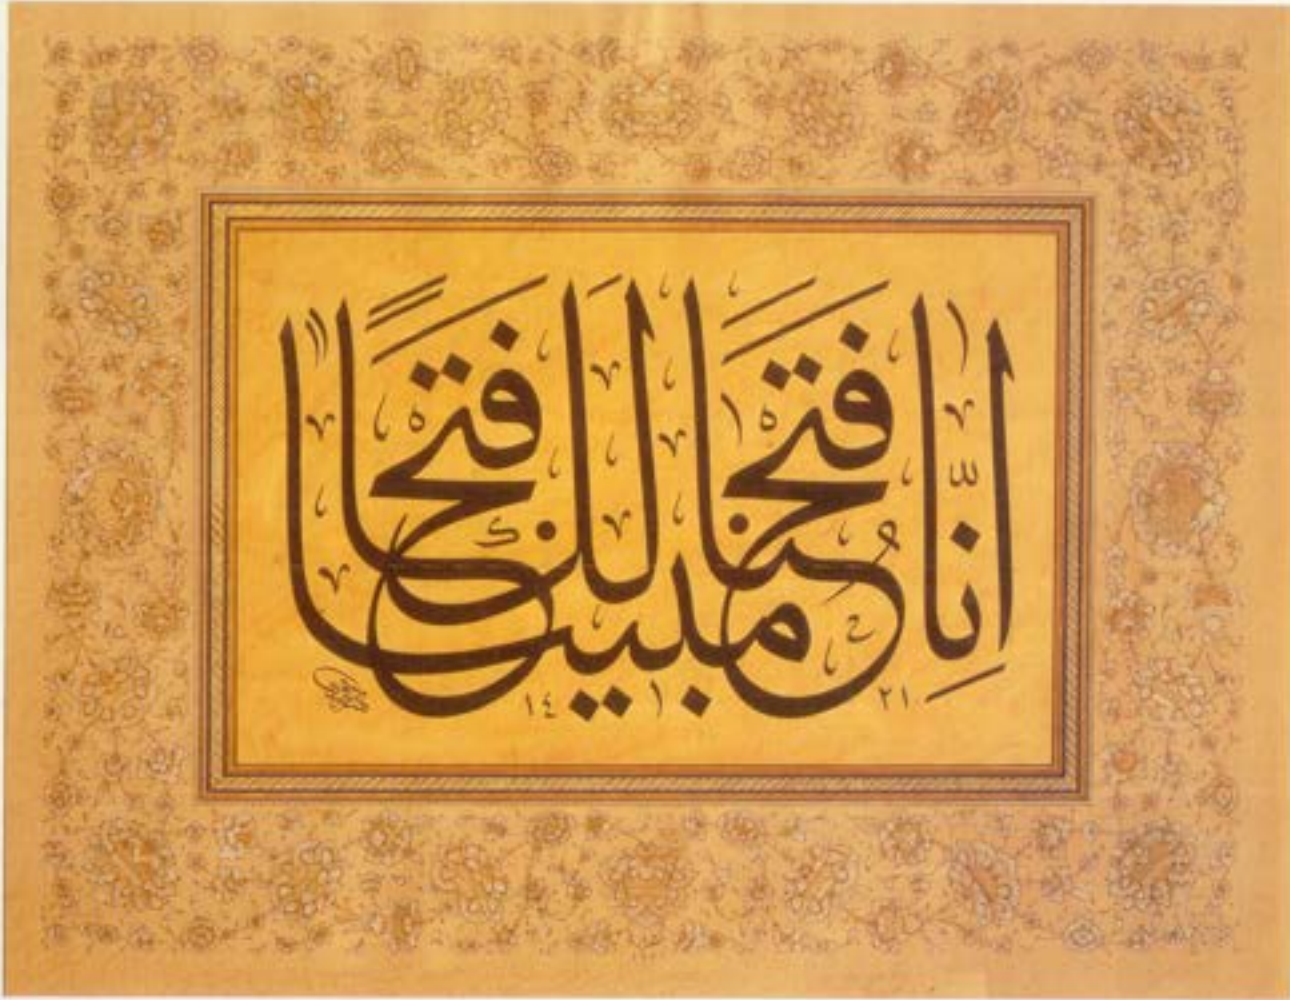 اِنَّا فَتَحْنَا لَكَ فَتْحًا مُبِينًا
١٤٢١